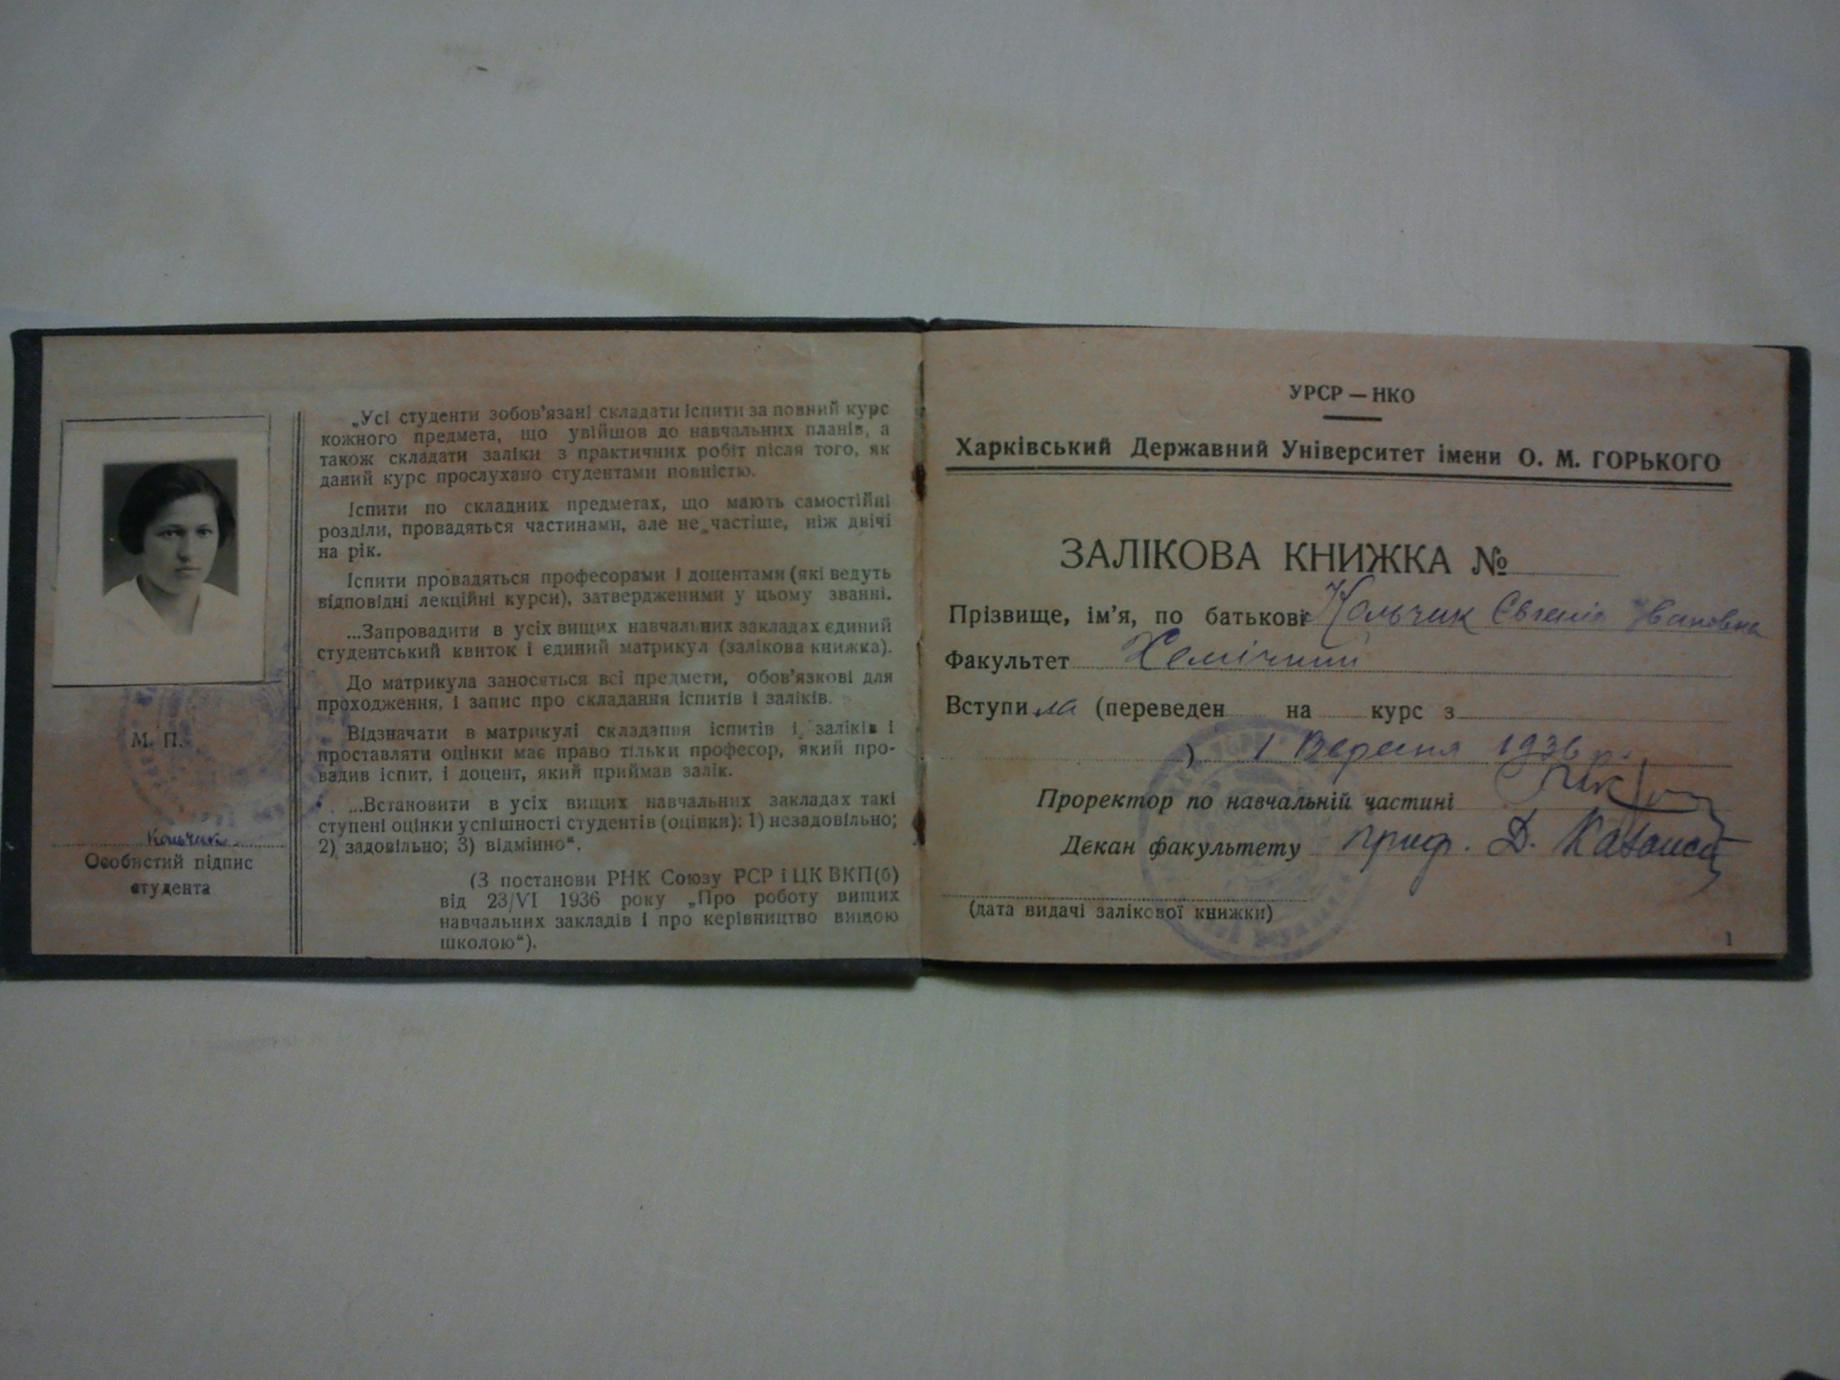 „Усі студенти зобов'язані складати іспити за повний курс
кожного предмета, що увійшов до навчальних планів, а
також складати заліки з практичних робіт після того, як
даний курс прослухано студентами повністю.
Іспити по складних предметах, що мають самостійні
розділи, провадяться частинами, але не частіше, ніж двічі
на рік.
Іспити провадяться професорами і доцентами (які ведуть
відповідні лекційні курси), затвердженими у цьому званні.
...Запровадити в усіх вищих навчальних закладах єдиний
студентський квиток і єдиний матрикул (залікова книжка).
До матрикула заносяться всі предмети, обов'язкові для
проходження, і запис про складання іспитів і заліків.
Відзначати в матрикулі складання іспитів і заліків і
проставляти оцінки має право тільки професор, який про-
вадив іспит, і доцент, який приймав залік.
...Встановити в усіх вищих навчальних закладах такі
ступені оцінки успішності студентів (оцінки): 1) незадовільно;
2) задовільно; 3) відмінно“.
(З постанови РНК Союзу РСР і ЦК ВКП(б)
від 23/VI 1936 року „Про роботу вищих
навчальних закладів і про керівництво вищою
школою“).
М. П.
Кольчик
Особистий підпис
студента
УРСР — НКО
Харківський Державний Університет імени О. М. ГОРЬКОГО
ЗАЛІКОВА КНИЖКА №
Прізвище, ім'я, по батькові Кольчик Євгенія Івановна
Факультет Хемічний
Вступила (переведен на курс з
) 1 Вересня 1936 р.
Проректор по навчальній частині
Декан факультету проф. Д.
(дата видачі залікової книжки)
1